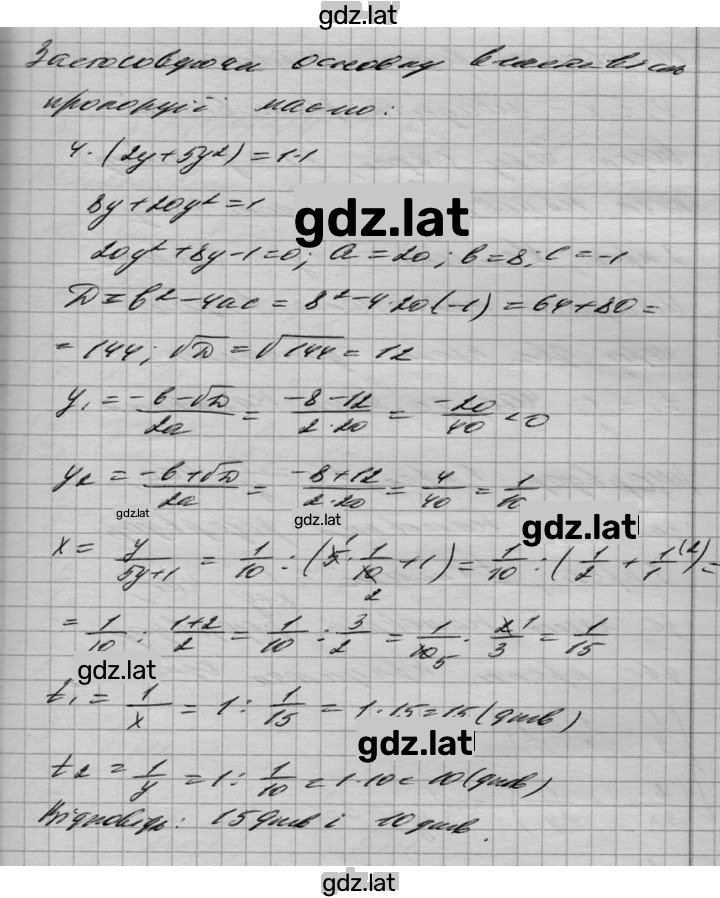 gdz.lat
Застосовуючи основну властивість
пропорції маємо:
4·(2y+5y²)=1·1
8y+20y²=1
gdz.lat
20y²+8y-1=0; a=20; b=8; c=-1
D=b²-4ac=8²-4·20(-1)=64+80=
=144; √D=√144=12
y₁=(-b-√D)/2a=(-8-12)/(2·20)=-20/40<0
y₂=(-b+√D)/2a=(-8+12)/(2·20)=4/40=1/10
gdz.lat
gdz.lat
gdz.lat
x=y/(5y+1)=1/10:(5·1/10+1)=1/10:(1/2+1/1)=
=1/10:(1+2)/2=1/10:3/2=1/10·2/3=1/15
gdz.lat
t₁=1/x=1:1/15=1·15=15(днів)
gdz.lat
t₂=1/y=1:1/10=1·10=10(днів)
Відповідь: 15 днів і 10 днів.
gdz.lat